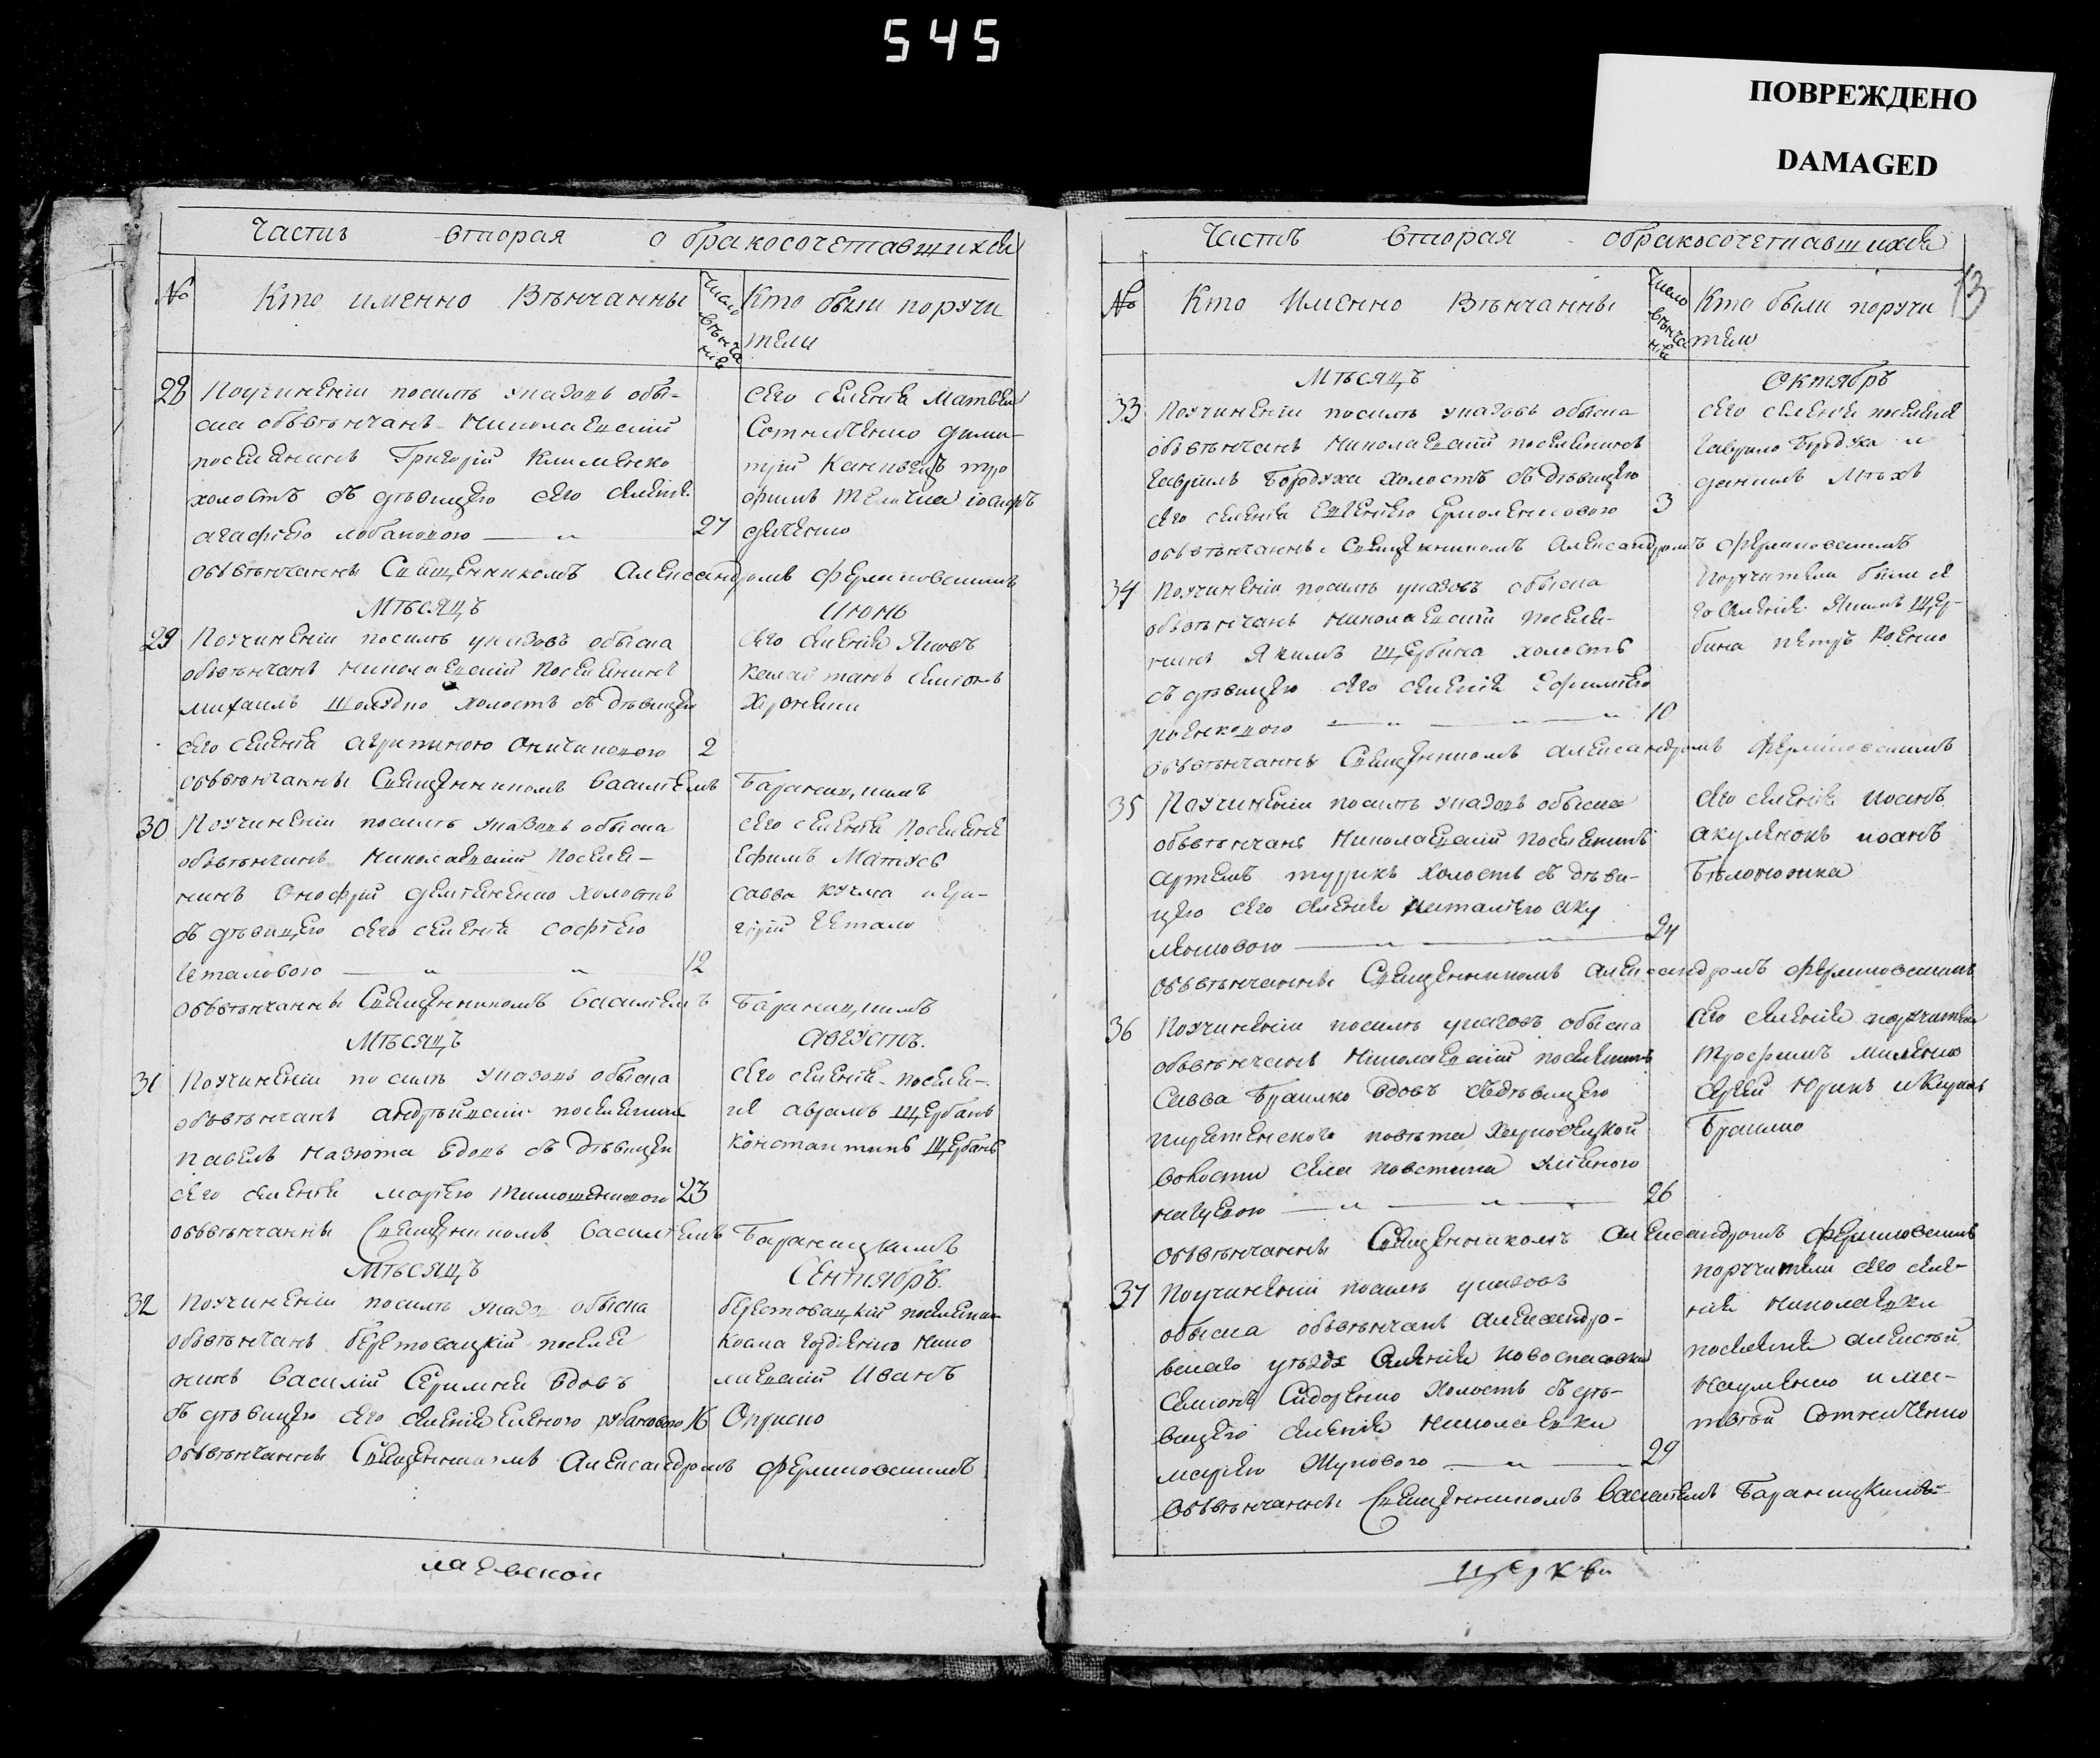 545
ПОВРЕЖДЕНО
DAMAGED
Часть вторая о бракосочетавшихся
№ Кто именно Вѣнчанны Число вѣнчания Кто были поручи
тели
28 Поучиненіи посилѣ указовъ обы-
ска обвѣнчанъ николаевскій
поселянинъ Григорій Клименко
холостъ съ дѣвицею сего селенія
агафіею лобановою 27
сего селенія Матвей
Сотниченко дими-
трій тро
фимъ іосифъ
обвѣнчанны Священникомъ Александромъ Ферлиовскимъ
Мѣсяцъ Июнь
29 Поучиненіи посилѣ указовъ обыска
обвѣнчанъ николаевскій Поселянинъ
михаилъ холостъ съ дѣвицею
сего селенія агрипиною Оничиковою 2
сего селенія Яковъ
симіонъ
обвѣнчанны Священникомъ василіемъ Бараницкимъ
30 Поучиненіи посилѣ указовъ обыска
обвѣнчанъ николаевскій Поселя-
нинъ Онофрій демяненко холостъ
съ дѣвицею сего селенія софіею
12
сего селенія поселяне
Ефимъ Матузъ
савва кучма и гри-
горій
обвѣнчанны Священникомъ василіемъ Бараницкимъ
Мѣсяцъ Августъ.
31 Поучиненіи посилѣ указовъ обыска
обвѣнчанъ андрѣйвскій поселянинъ
павелъ назюта вдовъ съ дѣвицею
сего селенія маріею тимошенковою 23
сего селенія поселя-
не аврамъ Щербанъ
константинъ Щербанъ
обвѣнчанны Священникомъ василіемъ Бараницкимъ
Мѣсяцъ Сентябрь.
32 Поучиненіи посилѣ указовъ обыска
обвѣнчанъ берестовацкій поселя
нинъ василій вдовъ
съ дѣвицею сего селенія еленою рубановою 16
берестовацкій поселянин
козма гордіенко нико
лаевскій Иванъ
обвѣнчанны Священникомъ Александромъ Ферлиовскимъ
лаевской
Часть вторая о бракосочетавшихся 13
№ Кто Именно Вѣнчанны Число вѣнчания Кто были поручи
тели
Мѣсяцъ Октябрь
33 Поучиненіи посилѣ указовъ обыска
обвѣнчанъ николаевскій поселянинъ
гаврилъ Бородуха холостъ съ дѣвицею
сего селенія Евгеніею Ермоленковою 3
сего селенія поселяне
гаврило Бородуха и
данилъ Мѣхъ
обвѣнчанны Священникомъ Александромъ Ферлиовскимъ
34 Поучиненіи посилѣ указовъ обыска
обвѣнчанъ николаевскій поселя-
нинъ Якимъ Щербина холостъ
съ дѣвицею сего селенія Ефиміею
роенковою 10
Поручители были се
го селенія Якимъ Щер-
бина петръ Роенко
обвѣнчанны Священникомъ александромъ Ферлиовскимъ
35 Поучиненіи посилѣ указовъ обыска
обвѣнчанъ николаевскій поселянинъ
артемъ турикъ холостъ съ дѣви-
цею сего селенія наталіею аку
леновою 24
сего селенія иоанъ
акуленокъ иоанъ
обвѣнчанны Священникомъ александромъ Ферлиовскимъ
36 Поучиненіи посилѣ указовъ обыска
обвѣнчанъ николаевскій поселянинъ
Савва Браилко вдовъ съ дѣвицею
пирятенского повѣта
волости села повстина
26
сего селенія поручители
трофимъ миленко
сергій Юрикъ
Браилко
обвѣнчанны Священникомъ александромъ Ферлиовскимъ
37 Поучиненіи посилѣ указовъ
обыска обвѣнчанъ александро-
вскаго уѣзда Селенія новоспасовки
семіонъ Сидоренко холостъ съ дѣ-
вицею селенія николаевки
маріею Жуковою 29
поручители сего селе-
нія николаевки
поселяне алексѣй
науменко и ма-
твѣй Сотниченко
обвѣнчанны Священникомъ василіемъ Бараницкимъ
церкви